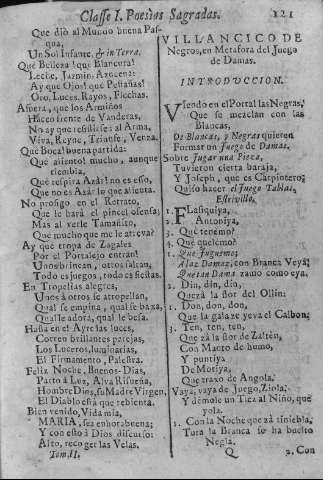 Classe I. Poesias Sagradas. 121
Que dió al Mundo buena Pas-
qua,
Un Sol Infante, & in Terra.
Què Belleza! què Blancura!
Leche, Jazmin, Azucena:
Ay que Ojos! què Pestañas!
Oro, Luces, Rayos, Flechas.
Afuera, que los Armiños
Hacen frente de Vanderas,
No ay que resistirse: al Arma,
Viva, Reyne, Triunfe, Venza.
Què Boca! buena partida:
Què aliento! mucho, aunque
tiembla,
Què respira Azàr! no es esso,
Que no es Azàr lo que alienta.
No prosigo en el Retrato,
Que le harà el pincèl ofensa;
Mas al verle Tamañito,
Què mucho que me le atreva?
Ay què tropa de Zagales
Por el Portalejo entran!
Unos brincan, otros saltan,
Todo es juegos, todo es fiestas.
En Tropelias alegres,
Unos à otros se atropellan,
Qual se empina, qual se baxa,
Qual le adora, qual le besa.
Hasta en el Ayre las luces,
Corren brillantes parejas,
Los Luceros, luminarias,
El Firmamento, Palestra.
Feliz Noche, Buenos-Dias,
Parto à Luz, Alva Risueña,
Hombre Dios, su Madre Virgen,
El Diablo està que rebienta.
Bien venido, Vida mia,
MARIA, sea enhorabuena;
Y con esto à Dios discurso:
Alto, recoger las Velas.
Tom. II.
VILLANCICO DE
Negros, en Metafora del Juego
de Damas.
INTRODUCCION.
Viendo en el Portal las Negras,
Que se mezclan con las
Blancas,
De Blancas, y Negras quieren
Formar un Juego de Damas.
Sobre jugar una Pieza,
Tuvieron cierta baraja,
Y Joseph, que es Carpintero,
Quiso hacer el Juego Tablas.
Estrivillo.
1. Flasiquiya,
Antoniya,
3. Què tenemo?
4. Què quelemo?
1. Que Juguemo;
A laz Damaz, con Branca Veya;
Puez tan Dama zamo como eya.
2. Din, din, din,
Quezà la flor del Ollin:
1. Don, don, don,
Que la gala ze yeva el Calbon;
3. Ten, ten, ten,
Que zà la flor de Zaltèn,
Con Macto de humo,
Y puntiya
De Motiya,
Que traxo de Angola.
Vaya, vaya de Juego, Ziola,
Y demole un Tiez al Niño, que
yola.
1. Con la Noche que zà tiniebla,
Tura la Branca se ha buelto
Negla.
Q 2. Con